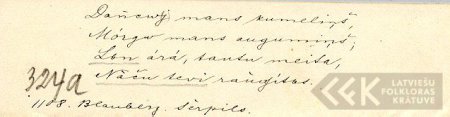 Dancoj mans kumeliņš,
Mórgo mans augumiņš;
Lən árá, tautu meita,
Náču tevi raúgítos.
324a
1108. Blauberg. Sērpils.
LATVIEŠU
FOLKLORAS
KRĀTUVE